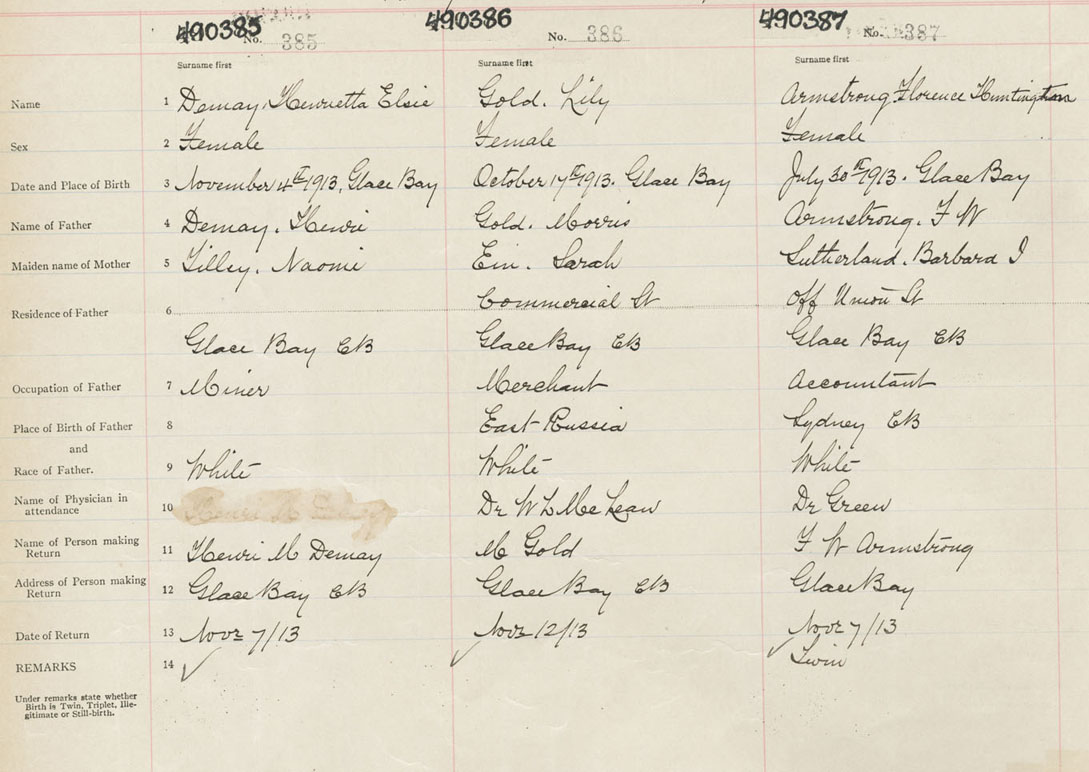 490385 490386 490387
No. 385 No. 386 No. 387
Surname first Surname first Surname first
Name 1 Demay, Henrietta Elsie Gold. Lily Armstrong Florence Huntington
Sex 2 Female Female Female
Date and Place of Birth 3 November 4th 1913, Glace Bay October 17th 1913. Glace Bay July 30th 1913. Glace Bay
Name of Father 4 Demay. Henri Gold. Morris Armstrong. F W
Maiden name of Mother 5 Lilley. Naomi Ein. Sarah Sutherland. Barbara I
Residence of Father 6 Commercial St Off Union St
Glace Bay CB Glace Bay CB Glace Bay CB
Occupation of Father 7 Miner Merchant Accountant
Place of Birth of Father 8 East Russia Sydney CB
and
Race of Father. 9 White White White
Name of Physician in
attendance 10 Dr W L McLean Dr Green
Name of Person making
Return 11 Henri M Demay M Gold F W Armstrong
Address of Person making
Return 12 Glace Bay CB Glace Bay CB Glace Bay
Date of Return 13 Novr 7/13 Novr 12/13 Novr 7/13
REMARKS 14 ✓ ✓ ✓ Twin
Under remarks state whether
Birth is Twin, Triplet, Ille-
gitimate or Still-birth.